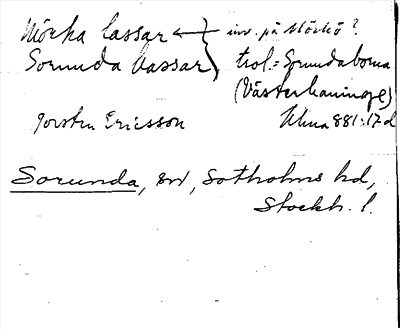 Mörka lassar ← } inv. på Mörkö?
Sorunda bassar } trol. = Sorundaborna
(Västerhaninge)
Torsten Ericsson Ulma 881:17 d
Sorunda, sn, Sotholms hd,
Stockh. l.